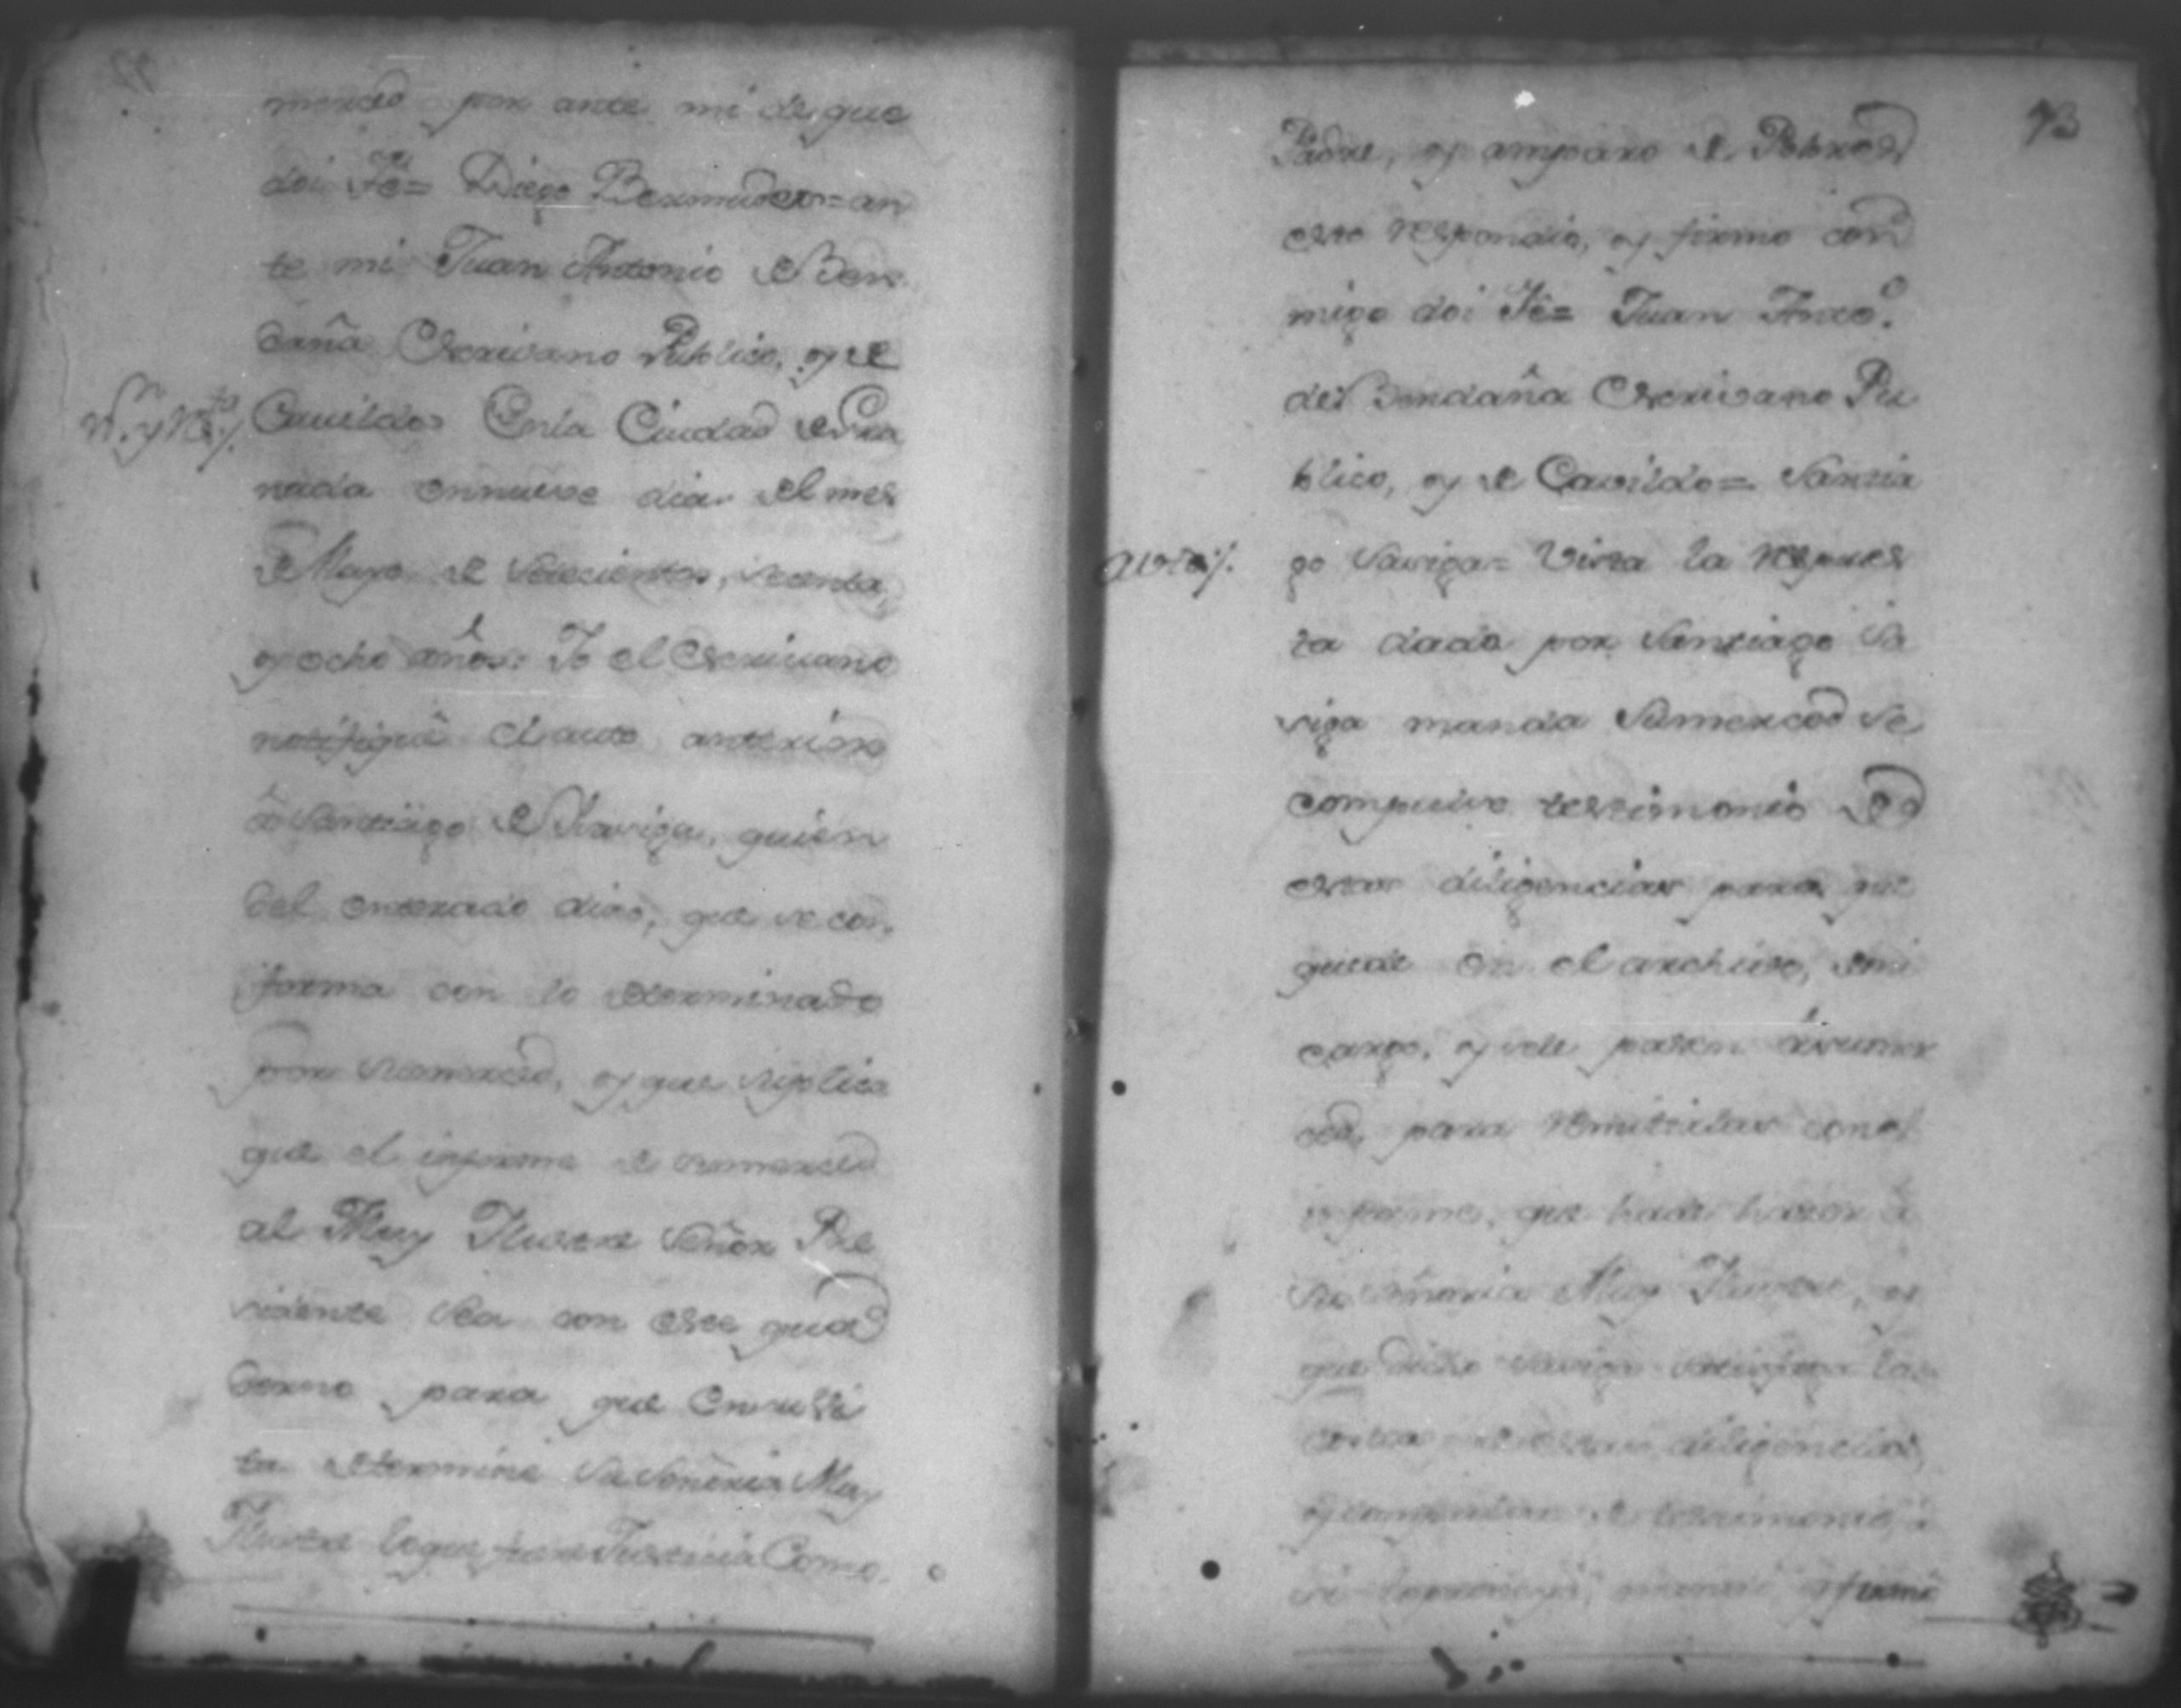 merced por ante mi de que
doi Fé= Diego Bermudez= an
te mi Juan Antonio de Ben
daña Escrivano Publico, y de
Cavildo= En la Ciudad de Gra
nada en nueve dias del mes
de Mayo de setecientos, secenta,
y ocho años. Yo el Escrivano
notifiqué el auto anterior
â Santiago de Saviga, quien
del enterado dixo, que se con
forma con lo determinado
por sumerced, y que suplica
que el informe de sumerced
al Muy Ilustre Señor Pre
sidente sea con este quad
derno para que en su vis
ta determine Su Señoria Muy
Ilustre lo que fuere Justicia Como
N. y R.ta
73
Padre, y amparo de Pobres
esto respondio, y firmo con
migo doi Fé= Juan Anto.
de Bendaña Escrivano Pu
blico, y de Cavildo= Santia
Auto
go Saviga= Vista la respues
ta dada por Santiago Sa
viga manda Sumerced se
compulse testimonio de
estas diligencias para que
quede en el archivo, de mi
cargo, y se le pasen â sumer
ced, para remitirlas con el
informe, que ha de hacer â
Su Señoria Muy Ilustre, y
que dicho Saviga satisfaga las
costas de estas diligencias,
y firmó